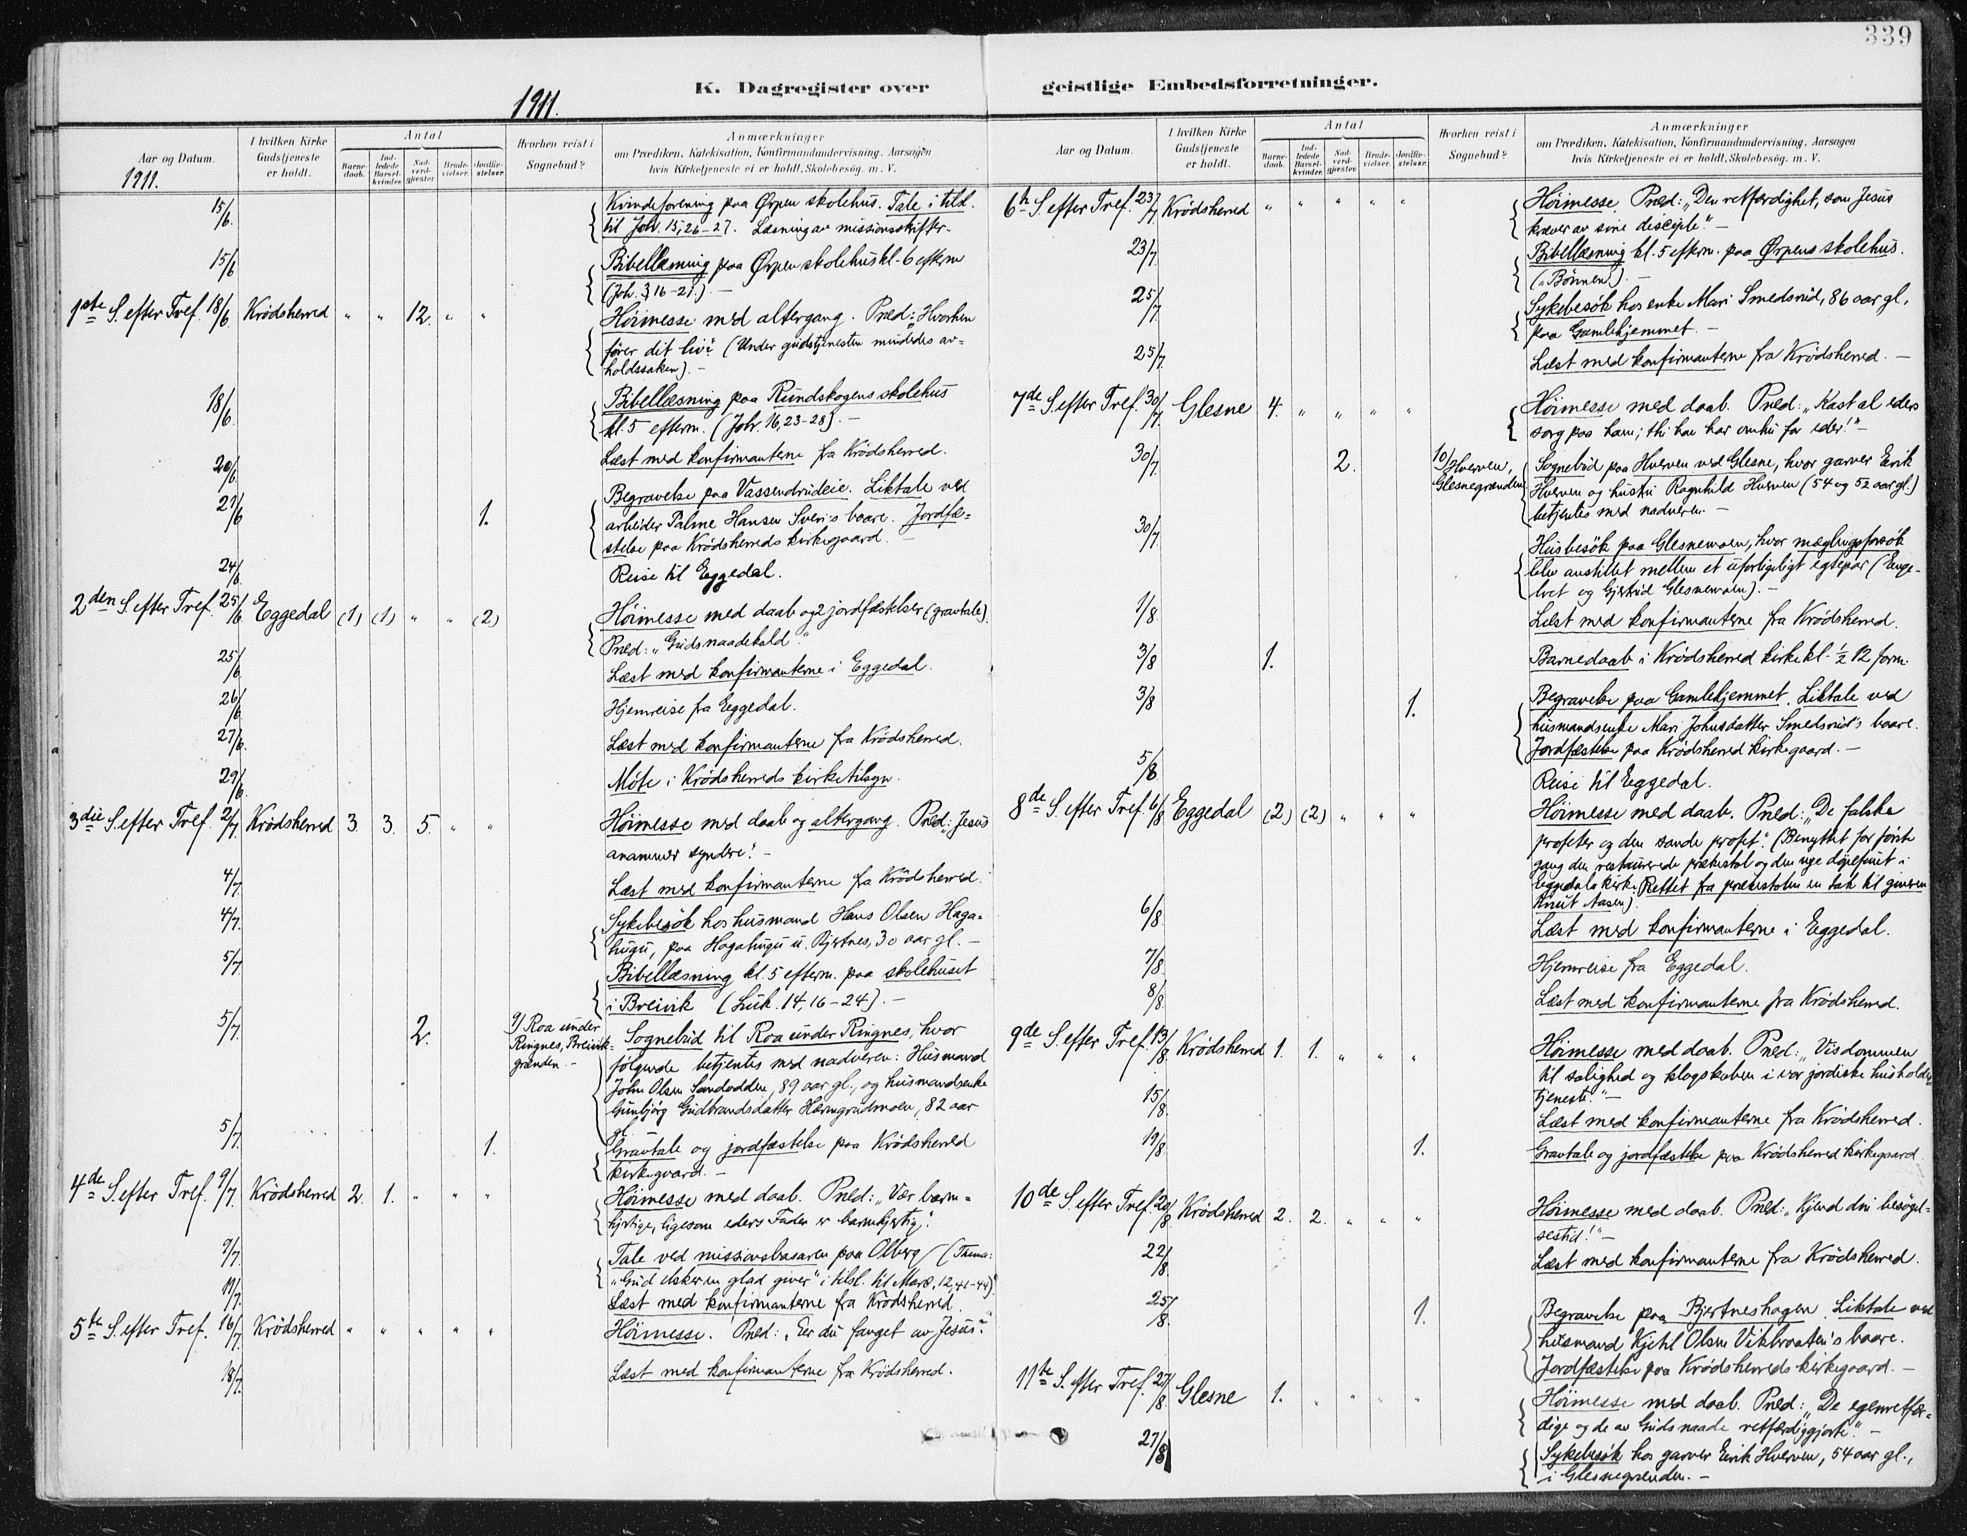 339
K. Dagregister over geistlige Embedsforretninger.
1911.
Aar og Datum.
1911.
I hvilken Kirke Gudstjeneste er holdt.
Antal
Barnedaab.
Indledede Barselkvinder.
Nadverdgjester.
Brudevielser.
Jordfæstelser.
Hvorhen reist i Sognebud?
Anmærkninger
om Prædiken, Katekisation, Konfirmandundervisning. Aarsagen
hvis Kirketjeneste ei er holdt. Skolebesøg. m. V.
15/6. Kvindeforening paa Ørpen skolehus. Tale i tilsl.
til Joh. 15, 26-27. Læsning av missionsskrifter.
15/6 Bibellæsning paa Ørpen skolehus kl. 6 efterm
(Joh. 3, 16-21.) —
1ste S. efter Tref. 18/6. Krødsherred " " 12. " " Høimesse med altergang. Præd.: "Hvorhen
fører dit liv?" (Under gudstjenesten mindedes av-
holdssaken). —
18/6. Bibellæsning paa Rundskogens skolehus
kl. 5 efterm. (Joh. 16, 23-28). —
20/6. Læst med konfirmanterne fra Krødsherred.
21/6 1. Begravelse paa Vassendrudeie. Liktale ved
arbeider Palme Hansen Sveri's baare. Jordfæ-
stelse paa Krødsherreds kirkegaard. —
24/6. Reise til Eggedal.
2den S. efter Tref. 25/6. Eggedal (1) (1) " " (2) Høimesse med daab og 2 jordfæstelser (gravtale).
Præd.: "Guds naadekald."
25/6 Læst med konfirmanterne i Eggedal.
26/6. Hjemreise fra Eggedal.
27/6. Læst med konfirmanterne fra Krødsherred.
29/6. Møte i Krødsherreds kirketilsyn.
3die S. efter Tref. 2/7. Krødsherred 3. 3. 5. " " Høimesse med daab og altergang. Præd.: "Jesus
anammer syndere." —
4/7. Læst med konfirmanterne fra Krødsherred.
4/7. Sykebesøk hos husmand Hans Olsen Haga-
hugu, paa Hagahugu u. Bjertnes, 30 aar gl. —
5/7. Bibellæsning kl. 5 efterm. paa skolehuset
i Breivik (Luk. 14, 16-24). —
5/7. 2. 9) Roa under
Ringnes, Breivik-
grænden. —
Sognebud til Roa under Ringnes, hvor
følgende betjentes med nadveren: Husmand
John Olsen Sandodden, 89 aar gl., og husmandsenke
Gunbjørg Gudbrandsdatter Hærmgrudmoen, 82 aar
gl.
5/7. 1. Gravtale og jordfæstelse paa Krødsherred
kirkegaard. —
4de S. efter Tref. 9/7. Krødsherred 2. 1. " " " Høimesse med daab. Præd.: "Vær barm-
hjertige, ligesom eders Fader er barmhjertig."
9/7. Tale ved missionsbasaren paa Olberg (Thema:
"Gud elsker en glad giver" i tilsl. til Mark. 12, 41-44).
11/7. Læst med konfirmanterne fra Krødsherred.
5te S. efter Tref. 16/7. Krødsherred " " " " " Høimesse. Præd.: "Er du fanget av Jesus?"
18/7. Læst med konfirmanterne fra Krødsherred.
Aar og Datum.
I hvilken Kirke Gudstjeneste er holdt.
Antal
Barnedaab.
Indledede Barselkvinder.
Nadverdgjester.
Brudevielser.
Jordfæstelser.
Hvorhen reist i Sognebud?
Anmærkninger
om Prædiken, Katekisation, Konfirmandundervisning. Aarsagen
hvis Kirketjeneste ei er holdt. Skolebesøg. m. V.
6te S. efter Tref. 23/7. Krødsherred " " " " " Høimesse. Præd.: "Den retfærdighet, som Jesus
kræver av sine disciple." —
23/7. Bibellæsning kl. 5 efterm. paa Ørpens skolehus.
("Bønnen"). —
25/7. Sykebesøk hos enke Mari Smedsrud, 86 aar gl.,
paa Gamlehjemmet. —
25/7. Læst med konfirmanterne fra Krødsherred. —
7de S. efter Tref. 30/7. Glesne 4. " " " " Høimesse med daab. Præd.: "Kast al eders
sorg paa ham; thi han har omhu for eder!" —
30/7. 2. 10) Hverven,
Glesnegrænden.
Sognebud paa Hverven ved Glesne, hvor garver Eirik
Hverven og hustru Ragnhild Hverven (54 og 52 aar gl.)
betjentes med nadveren. —
30/7. Husbesøk paa Glesnemoen, hvor mæglingsforsøk
blev anstillet mellem et uforligeligt egtepar (Enge-
bret og Gjertrud Glesnemoen). —
1/8. Læst med konfirmanterne fra Krødsherred.
3/8 1. Barnedaab i Krødsherred kirke kl. ½ 12 form.
3/8 1. Begravelse paa Gamlehjemmet. Liktale ved
husmandsenke Mari Johnsdatter Smedsrud's baare.
Jordfæstelse paa Krødsherred kirkegaard. —
5/8 Reise til Eggedal.
8de S. efter Tref. 6/8 Eggedal (2) (2) " " " Høimesse med daab. Præd.: "De falske
profeter og den sande profet." (Benyttet for første
gang den restaurerede prækestol og den nye døpefont i
Eggedals kirke. Rettet fra prækestolen en tak til giveren
Knut Aasen).
6/8. Læst med konfirmanterne i Eggedal.
7/8. Hjemreise fra Eggedal.
8/8. Læst med konfirmanterne fra Krødsherred.
9de S. efter Tref. 13/8. Krødsherred 1. 1. " " " Høimesse med daab. Præd.: "Visdommen
til salighed og klogskaben i vor jordiske husholder-
tjeneste." —
15/8. Læst med konfirmanterne fra Krødsherred.
19/8. 1. Gravtale og jordfæstelse paa Krødsherred kirkegaard.
10de S. efter Tref. 20/8 Krødsherred 2. 2. " " " Høimesse med daab. Præd.: "Kjend din besøgel-
sestid!" —
22/8. Læst med konfirmanterne fra Krødsherred.
25/8. 1. Begravelse paa Bjertneshagen. Liktale ved
husmand Kjetil Olsen Vikbraaten's baare.
Jordfæstelse paa Krødsherreds kirkegaard. —
11te S. efter Tref. 27/8. Glesne 1. " " " " Høimesse med daab. Præd.: "De egenretfær-
dige og de av Guds naade retfærdiggjorte." —
27/8 Sykebesøk hos garver Eirik Hverven, 54 aar gl.,
i Glesnegrænden. —